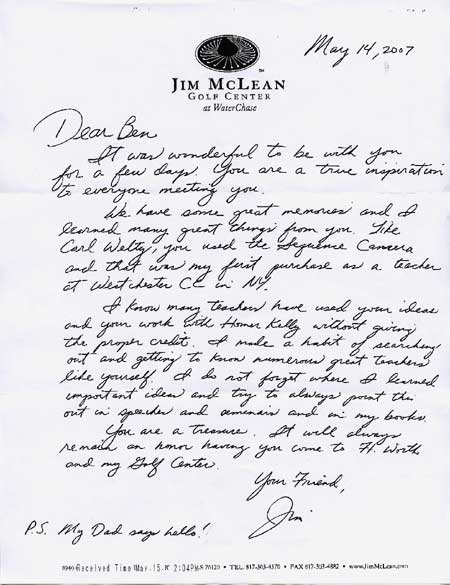 May 14, 2007
JIM MCLEAN
GOLF CENTER
at WaterChase
Dear Ben
It was wonderful to be with you
for a few days. You are a true inspiration
to everyone meeting you.
We have some great memories and I
learned many great things from you. Like
Carl Welty, you used the Sequence Camera
and that was my first purchase as a teacher
at Westchester CC in NY.
I know many teachers have used your ideas
and your work with Homer Kelly without giving
the proper credit. I made a habit of searching
out and getting to know numerous great teachers
like yourself. I do not forget where I learned
important ideas and try to always point this
out in speeches and seminars and in my books.
You are a treasure. It will always
remain an honor having you come to Ft. Worth
and my Golf Center.
Your Friend,
Jim
P.S. My Dad says hello!
Received Time May. 15. 2:04PM 76120 • TEL. 817-303-4370 • FAX 817-303-4882 • www.JimMcLean.com